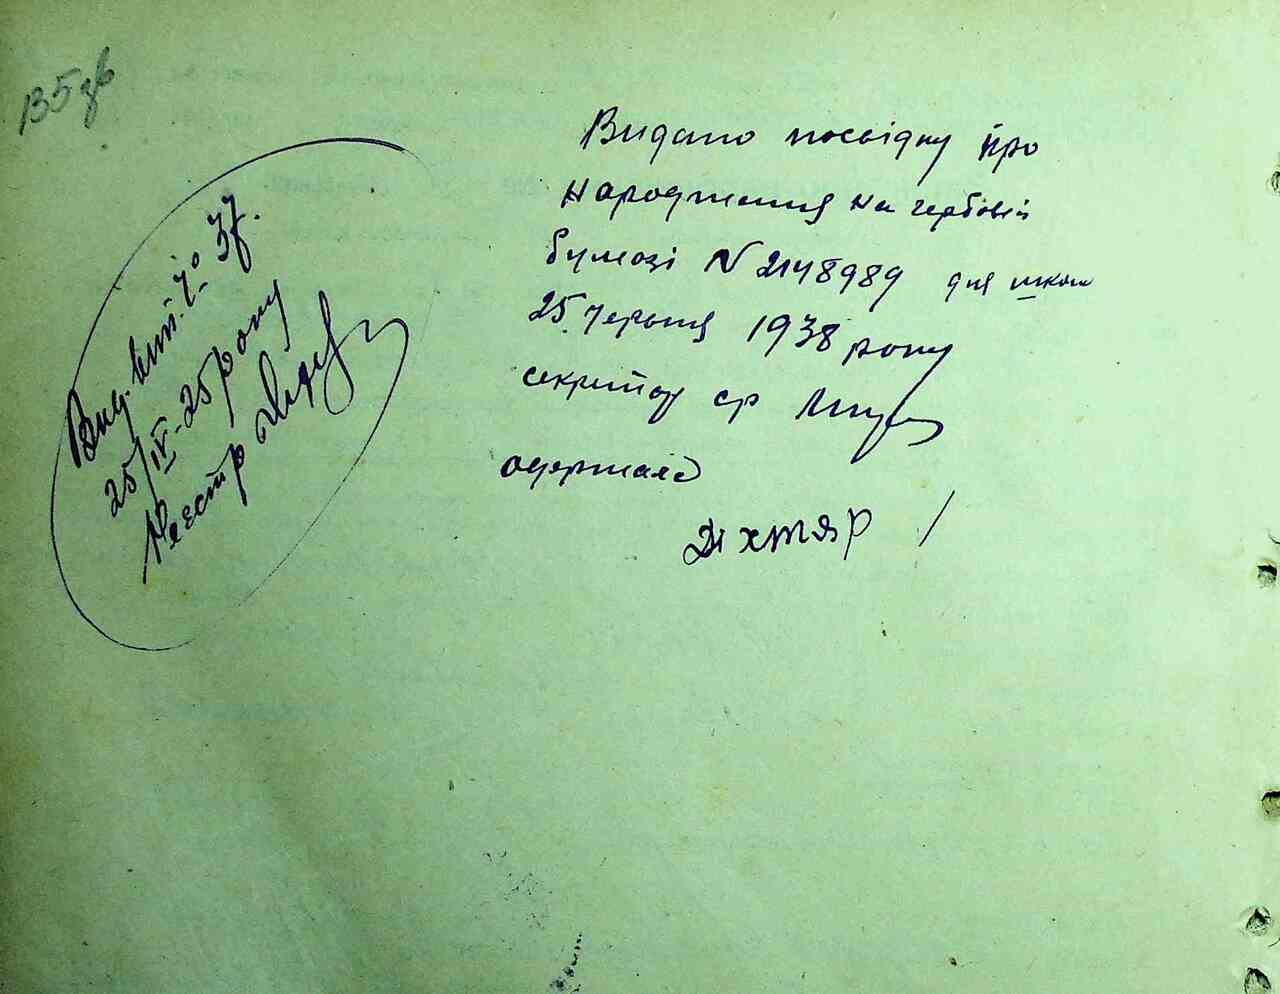 135 зв
Вид. вип. № 37.
25/IV-25 року
Реєстр
Видано посвідку про
народження на гербовій
бумазі N 2148989 для школ
25 червня 1938 року
секретар ср
одержала
Діхтяр